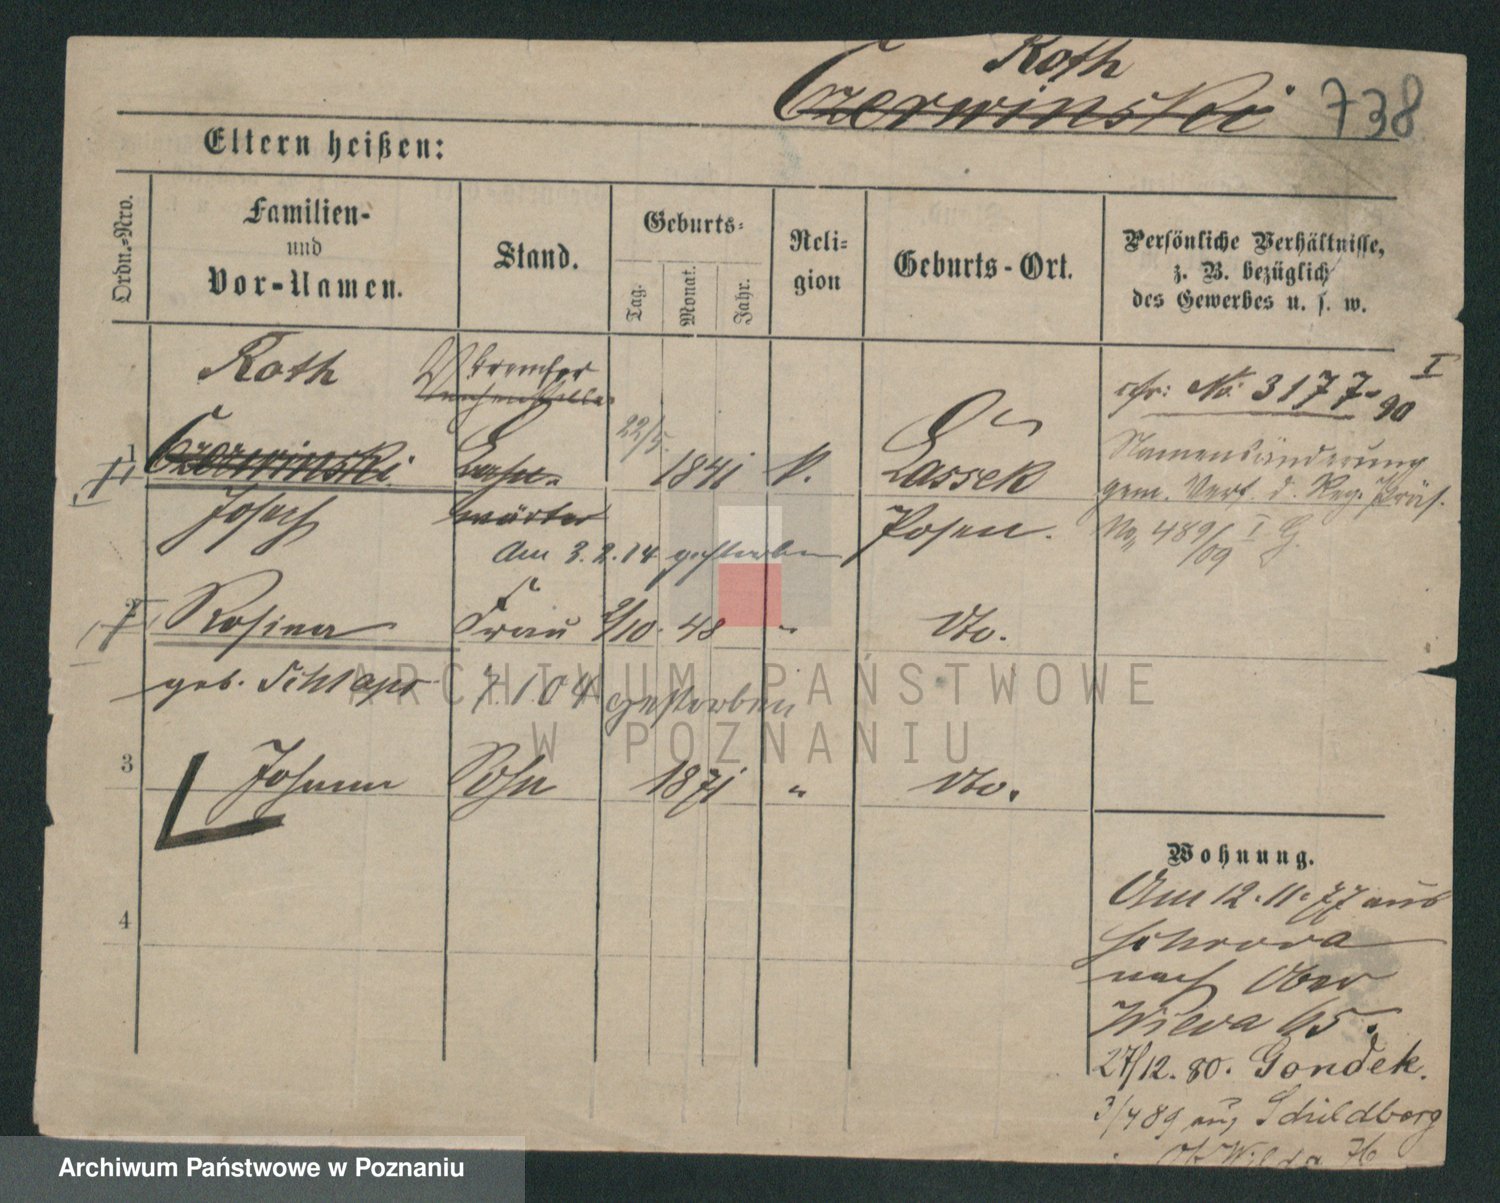 Roth
Czerwinski 738
Eltern heißen:
Ordn.-Nro.
Familien-
und
Vor-Namen.
Stand.
Geburts-
Tag.
Monat.
Jahr.
Reli-
gion
Geburts-Ort.
Persönliche Verhältnisse,
z. B. bezüglich
des Gewerbes u. s. w.
Roth
Bremser
1
Czerwinski
Josef
Bahn-
wärter
22/5.
1841
k.
Lassek
Posen.
cfr: No: 3177-90 I
Namensänderung
gem. Verf. d. Reg. Präs.
No 489/09 I G.
Am 3.2.14 gestorben
2
Rosina
geb. Schlaps
Frau
9/10. 48
"
dto.
7.1.04 gestorben
3
Johann
Sohn
1871
"
dto.
4
Wohnung.
Am 12.11.77 aus
nach Ober
Wilda 65.
27/12.80. Gondek.
3/4 89 aus Schildberg
Ob Wilda 76
ARCHIWUM PAŃSTWOWE
W POZNANIU
Archiwum Państwowe w Poznaniu